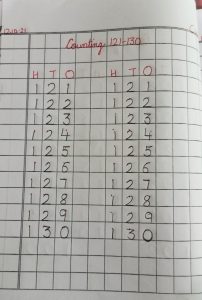 Counting 121-130
H T O H T O
1 2 1 1 2 1
1 2 2 1 2 2
1 2 3 1 2 3
1 2 4 1 2 4
1 2 5 1 2 5
1 2 6 1 2 6
1 2 7 1 2 7
1 2 8 1 2 8
1 2 9 1 2 9
1 3 0 1 3 0